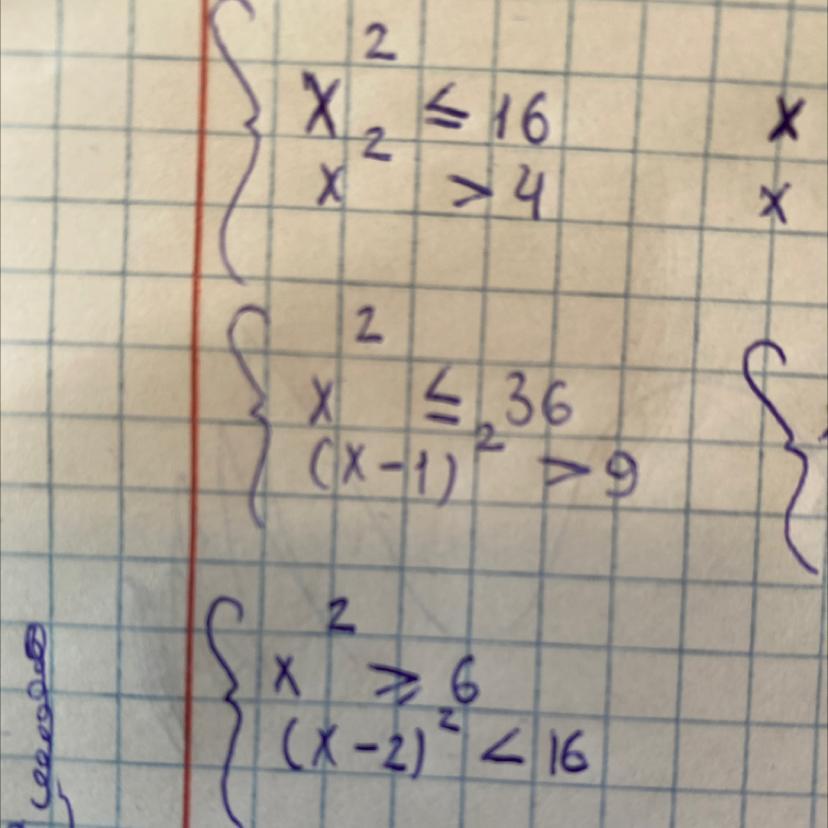 x² ≤ 16
x² > 4
x
x
x² ≤ 36
(x-1)² > 9
x² ≥ 6
(x-2)² < 16